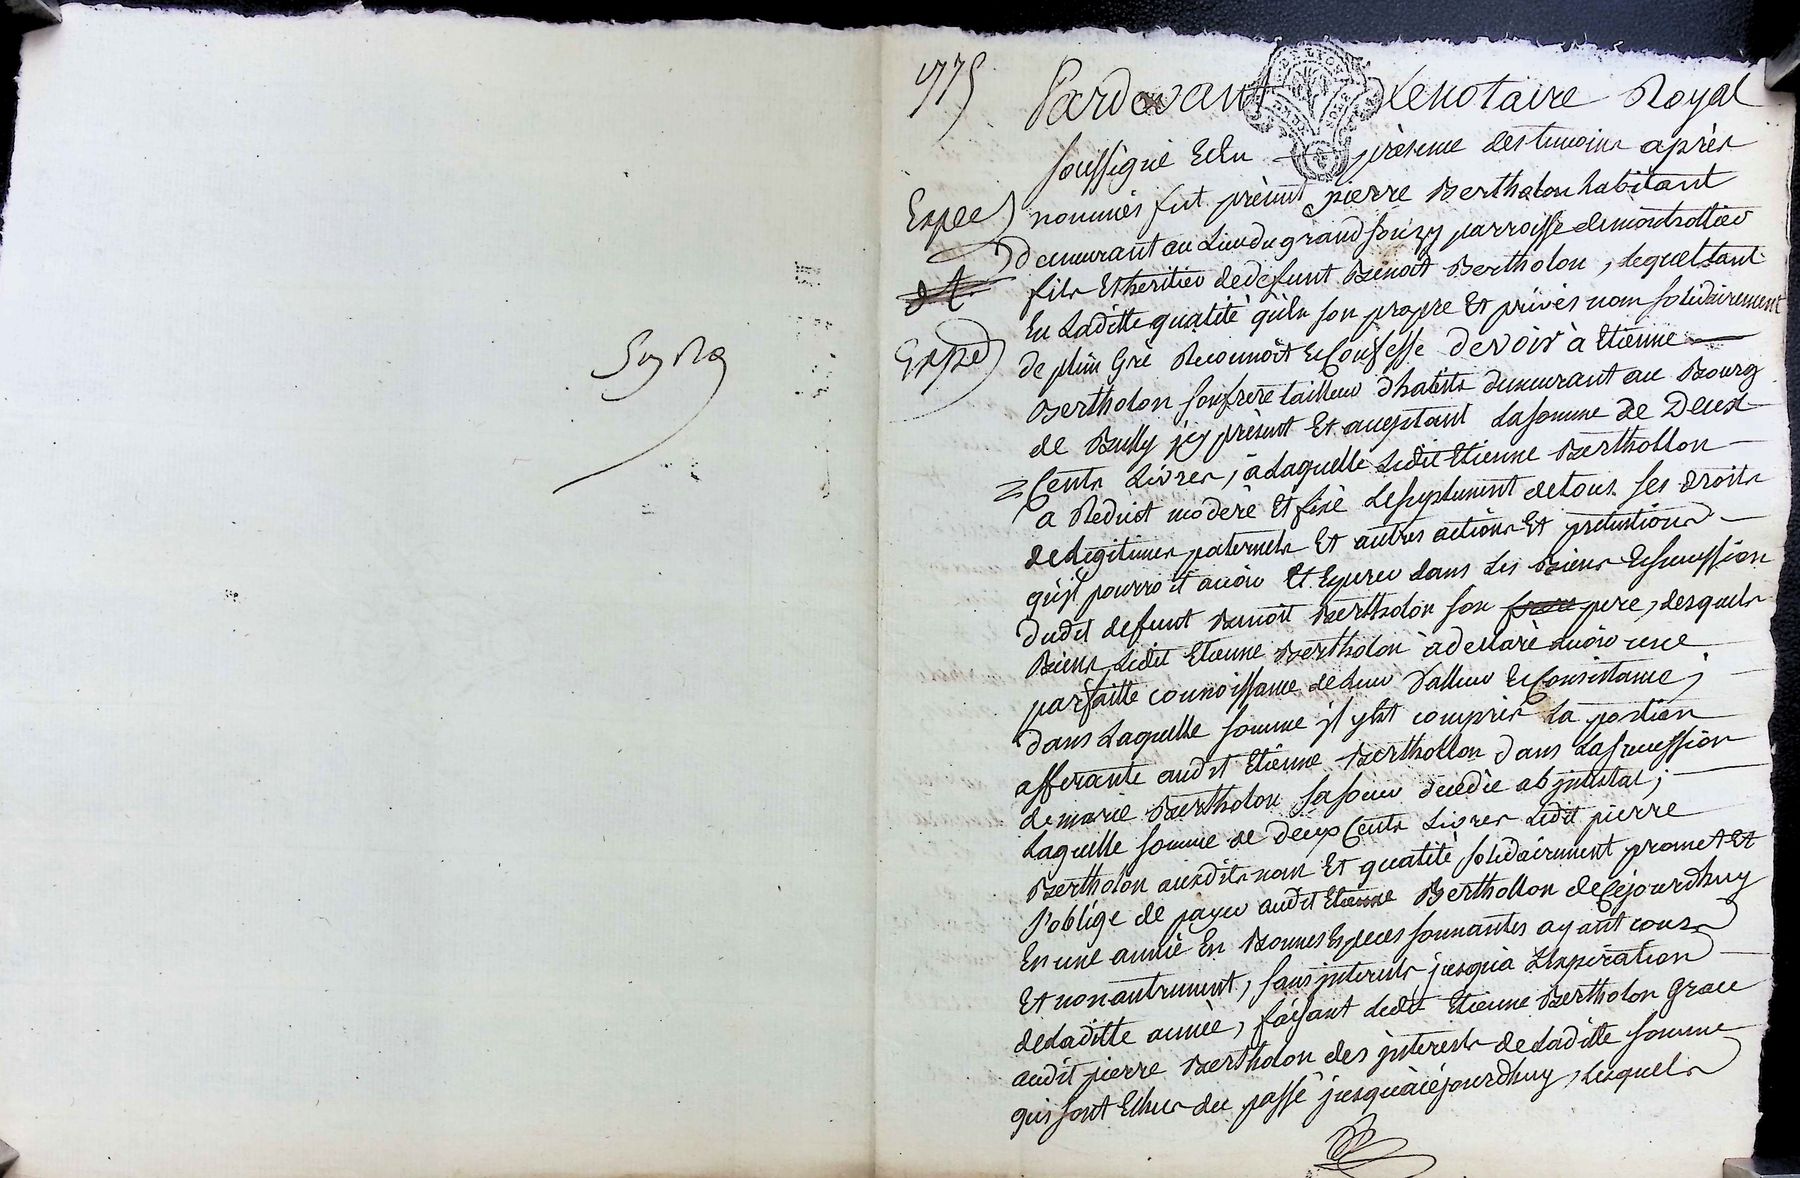 1775
Pardevant Le notaire Royal
soussigné Et En présence des temoins après
Expée
nommés fut présent pierre Bertholon habitant
demeurant au Lieu du grand souzy parroisse de montrottier
fils Et heritier de defunt Benoit Bertholon, Lequel tant
En Laditte qualité qu'En son propre Et privés nom solidairement
Exped
de plein Gré Reconnoit Et Confesse devoir à Etienne
Bertholon son frere tailleur d'habits demeurant au Bourg
de Bully jcy présent Et aceptant La somme de Deux
Cents Livres, à Laquelle Ledit Etienne Berthollon
a Reduit moderé Et fixé Le supplement de tous ses droits
de Legitimes paternels Et autres actions Et pretentions
qu'jl pourroit avoir Et Exercer dans Les Biens Et succession
dudit defunt Benoit Bertholon son frere pere, desquels
Biens Ledit Etienne Bertholon à déclaré avoir une
parfaitte connoissance de Leur Valleur Et Consistance;
dans Laquelle somme jl y Est compris La portion
afferante audit Etienne Berthollon dans La succession
de marie Bertholon sa sœur décédée ab jntestat;
Laquelle somme de deux Cents Livres Ledit pierre
Bertholon ausdits nom Et qualité solidairement promet Et
s'oblige de payer audit Etienne Berthollon de Cejourdhuy
En une année En Bonnes Especes sonnantes ayant cours
Et non autrement, sans jnterests jusqu'à L'Expiration
de Laditte année, faisant Ledit Etienne Bertholon Grace
audit pierre Bertholon des jnterests de Laditte somme
qui sont Echus du passé jusqu'à cejourdhuy, Lesquels